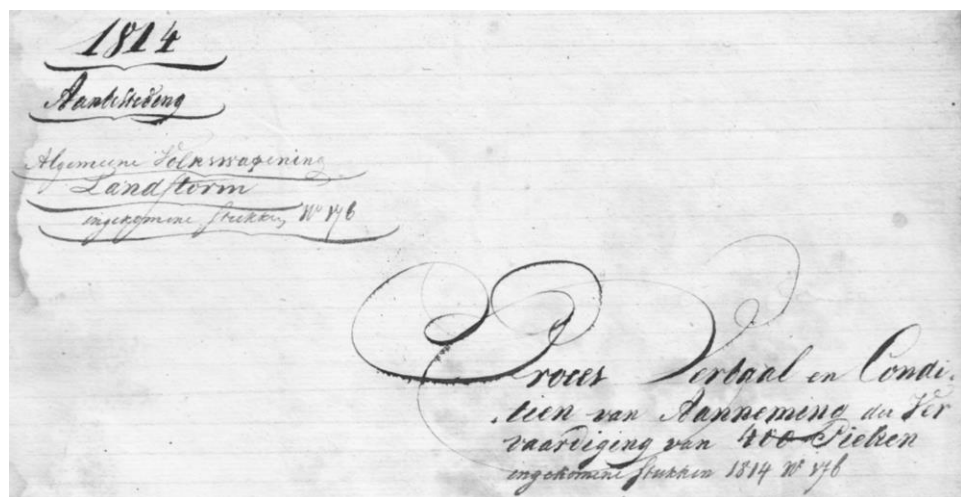 1814
Aanbesteding
Algemeene Volkswapening
Landstorm
ingekomene stukken No 176
Proces Verbaal en Condi-
tien van Aanneming der Ver
vaardiging van 400 Pieken
ingekomene stukken 1814 No 176